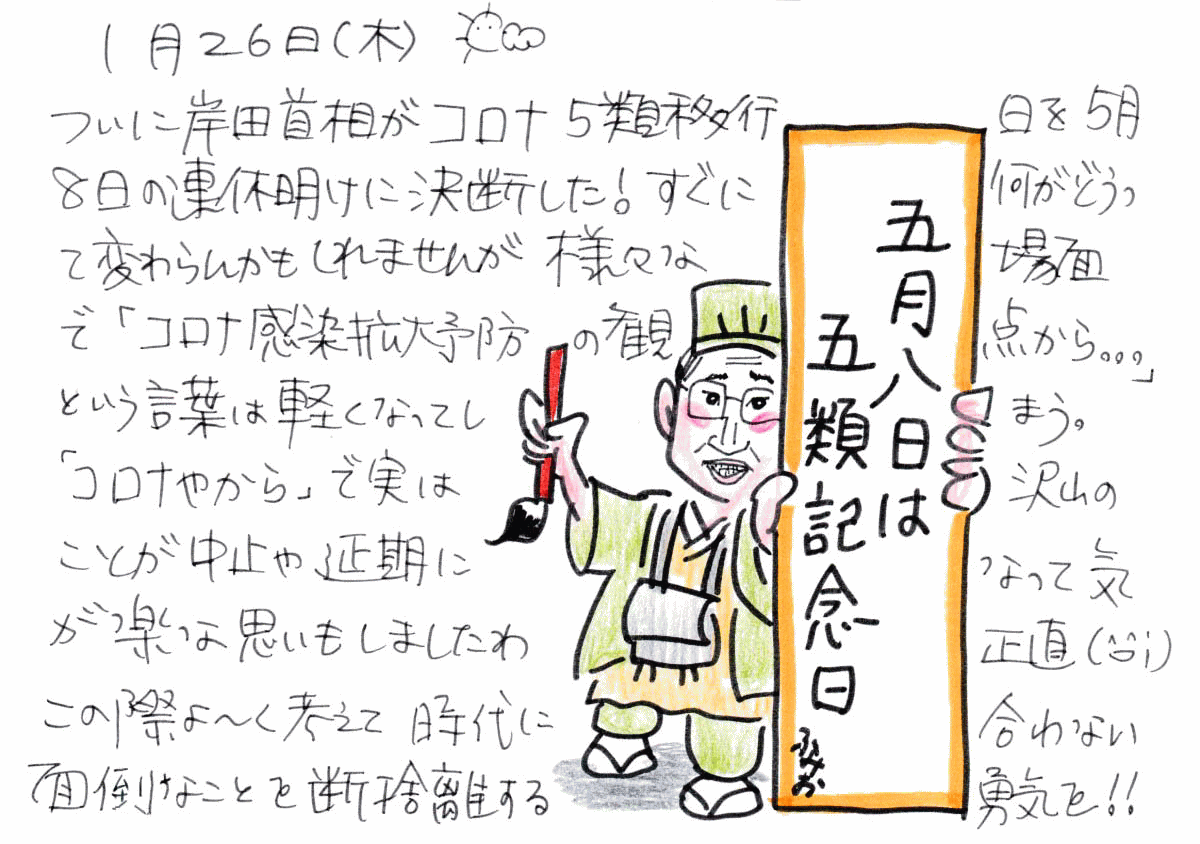 1月26日(木)
ついに岸田首相がコロナ5類移行日を5月
8日の連休明けに決断した!すぐに何がどうっ
て変わらんかもしれませんが様々な場面
で「コロナ感染拡大予防の観点から。。。」
という言葉は軽くなってしまう。
「コロナやから」で実は沢山の
ことが中止や延期になって気
が楽な思いもしましたわ正直(^^;)
この際よ〜く考えて時代に合わない
面倒なことを断捨離する勇気を!!
五月八日は
五類記念日
ふみお